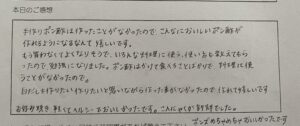 本日のご感想
手作りポン酢は作ったことがなかったので、こんなにおいしいポン酢が
作れるようになるなんて嬉しいです。
もう買わなくてよくなりそうで、いろんな料理に使う、使い方も教えてもら
ったので勉強になりました。ポン酢はかけて食べることばかりで、料理に使
うことがなかったので。
白だしも作りたい作りたいと思いながら作った事がなかったので作れて嬉しいです
お好み焼き 軽くてヘルシーでおいしかったです。こんにゃくが新鮮でした。
ポンズめちゃめちゃおいしかったです